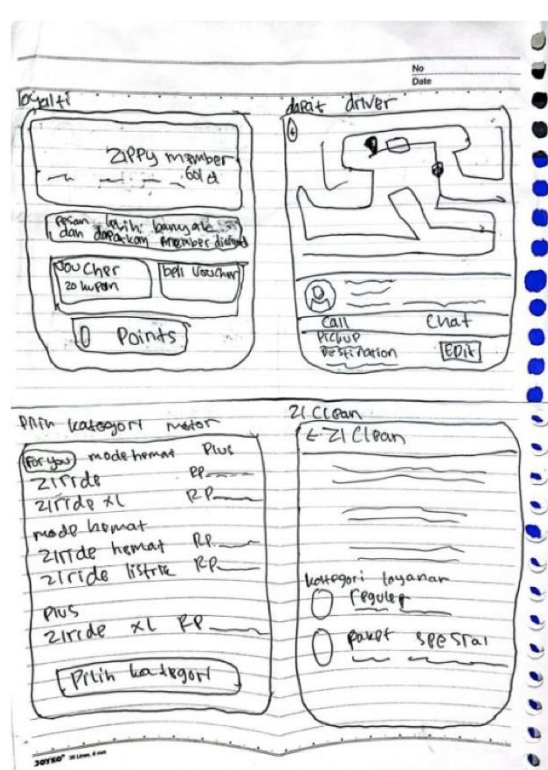 No
Date
loyalti
Zippy member
Gold
pesan lebih banyak
dan dapatkan member diamond
Voucher
20 kupon
beli voucher
0 Points
dapat driver
Call
Chat
Pickup
Destination
Edit
Pilih kategori motor
For you
mode hemat
Plus
ziride
Rp
ziride XL
Rp
mode hemat
ziride hemat
Rp
ziride listrik
Rp
Plus
ziride XL
Rp
Pilih kategori
ZI Clean
← ZI Clean
kategori layanan
reguler
paket spesial
JOYKO